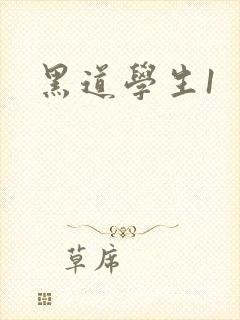 黑道學生1
草席